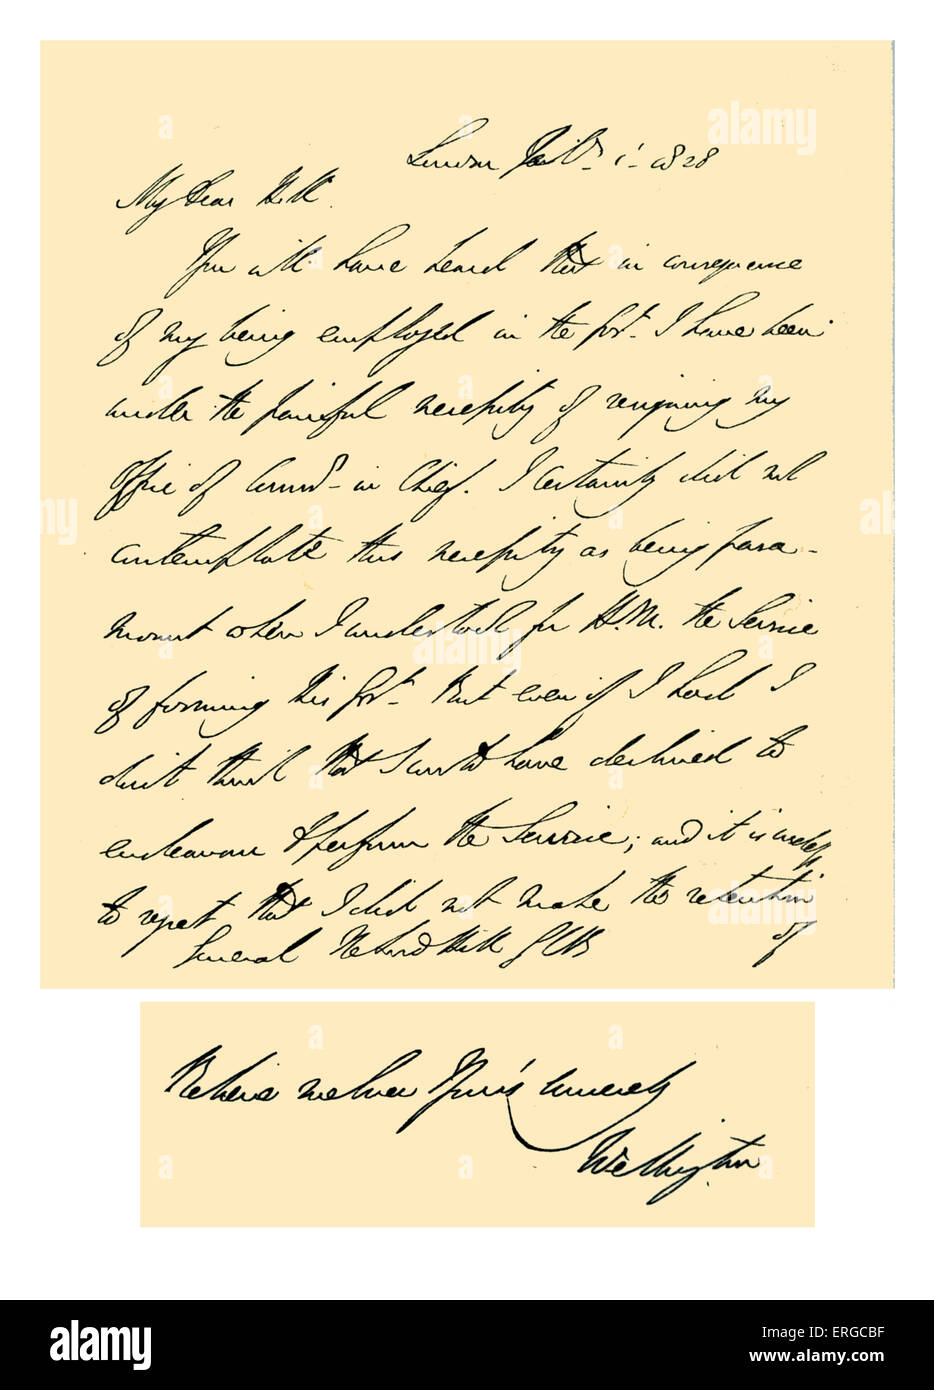 London 1828
My Dear Hill.
You will have heard that in consequence
of my being employed in the Govt. I have been
under the painful necessity of resigning my
Office of Commr in Chief. I certainly did not
contemplate this necessity as being para-
mount when I undertook for H.M. the Service
of forming his Govt. But even if I had I
don't think that I could have declined to
endeavour to perform the Service; and it is useless
to repeat that I did not make the retention
of
General The Lord Hill GCB
Believe me Ever Yours sincerely
Wellington
alamy
a
Image ID: ERGCBF
www.alamy.com